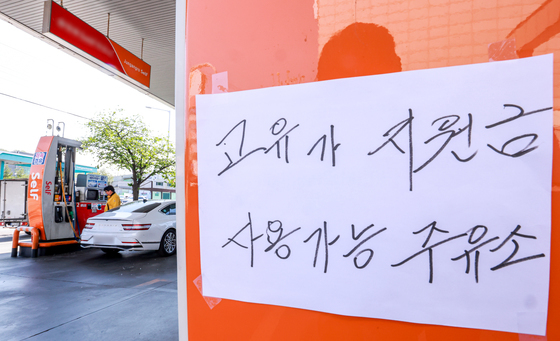 고유가 지원금
사용가능 주유소
Self
Self